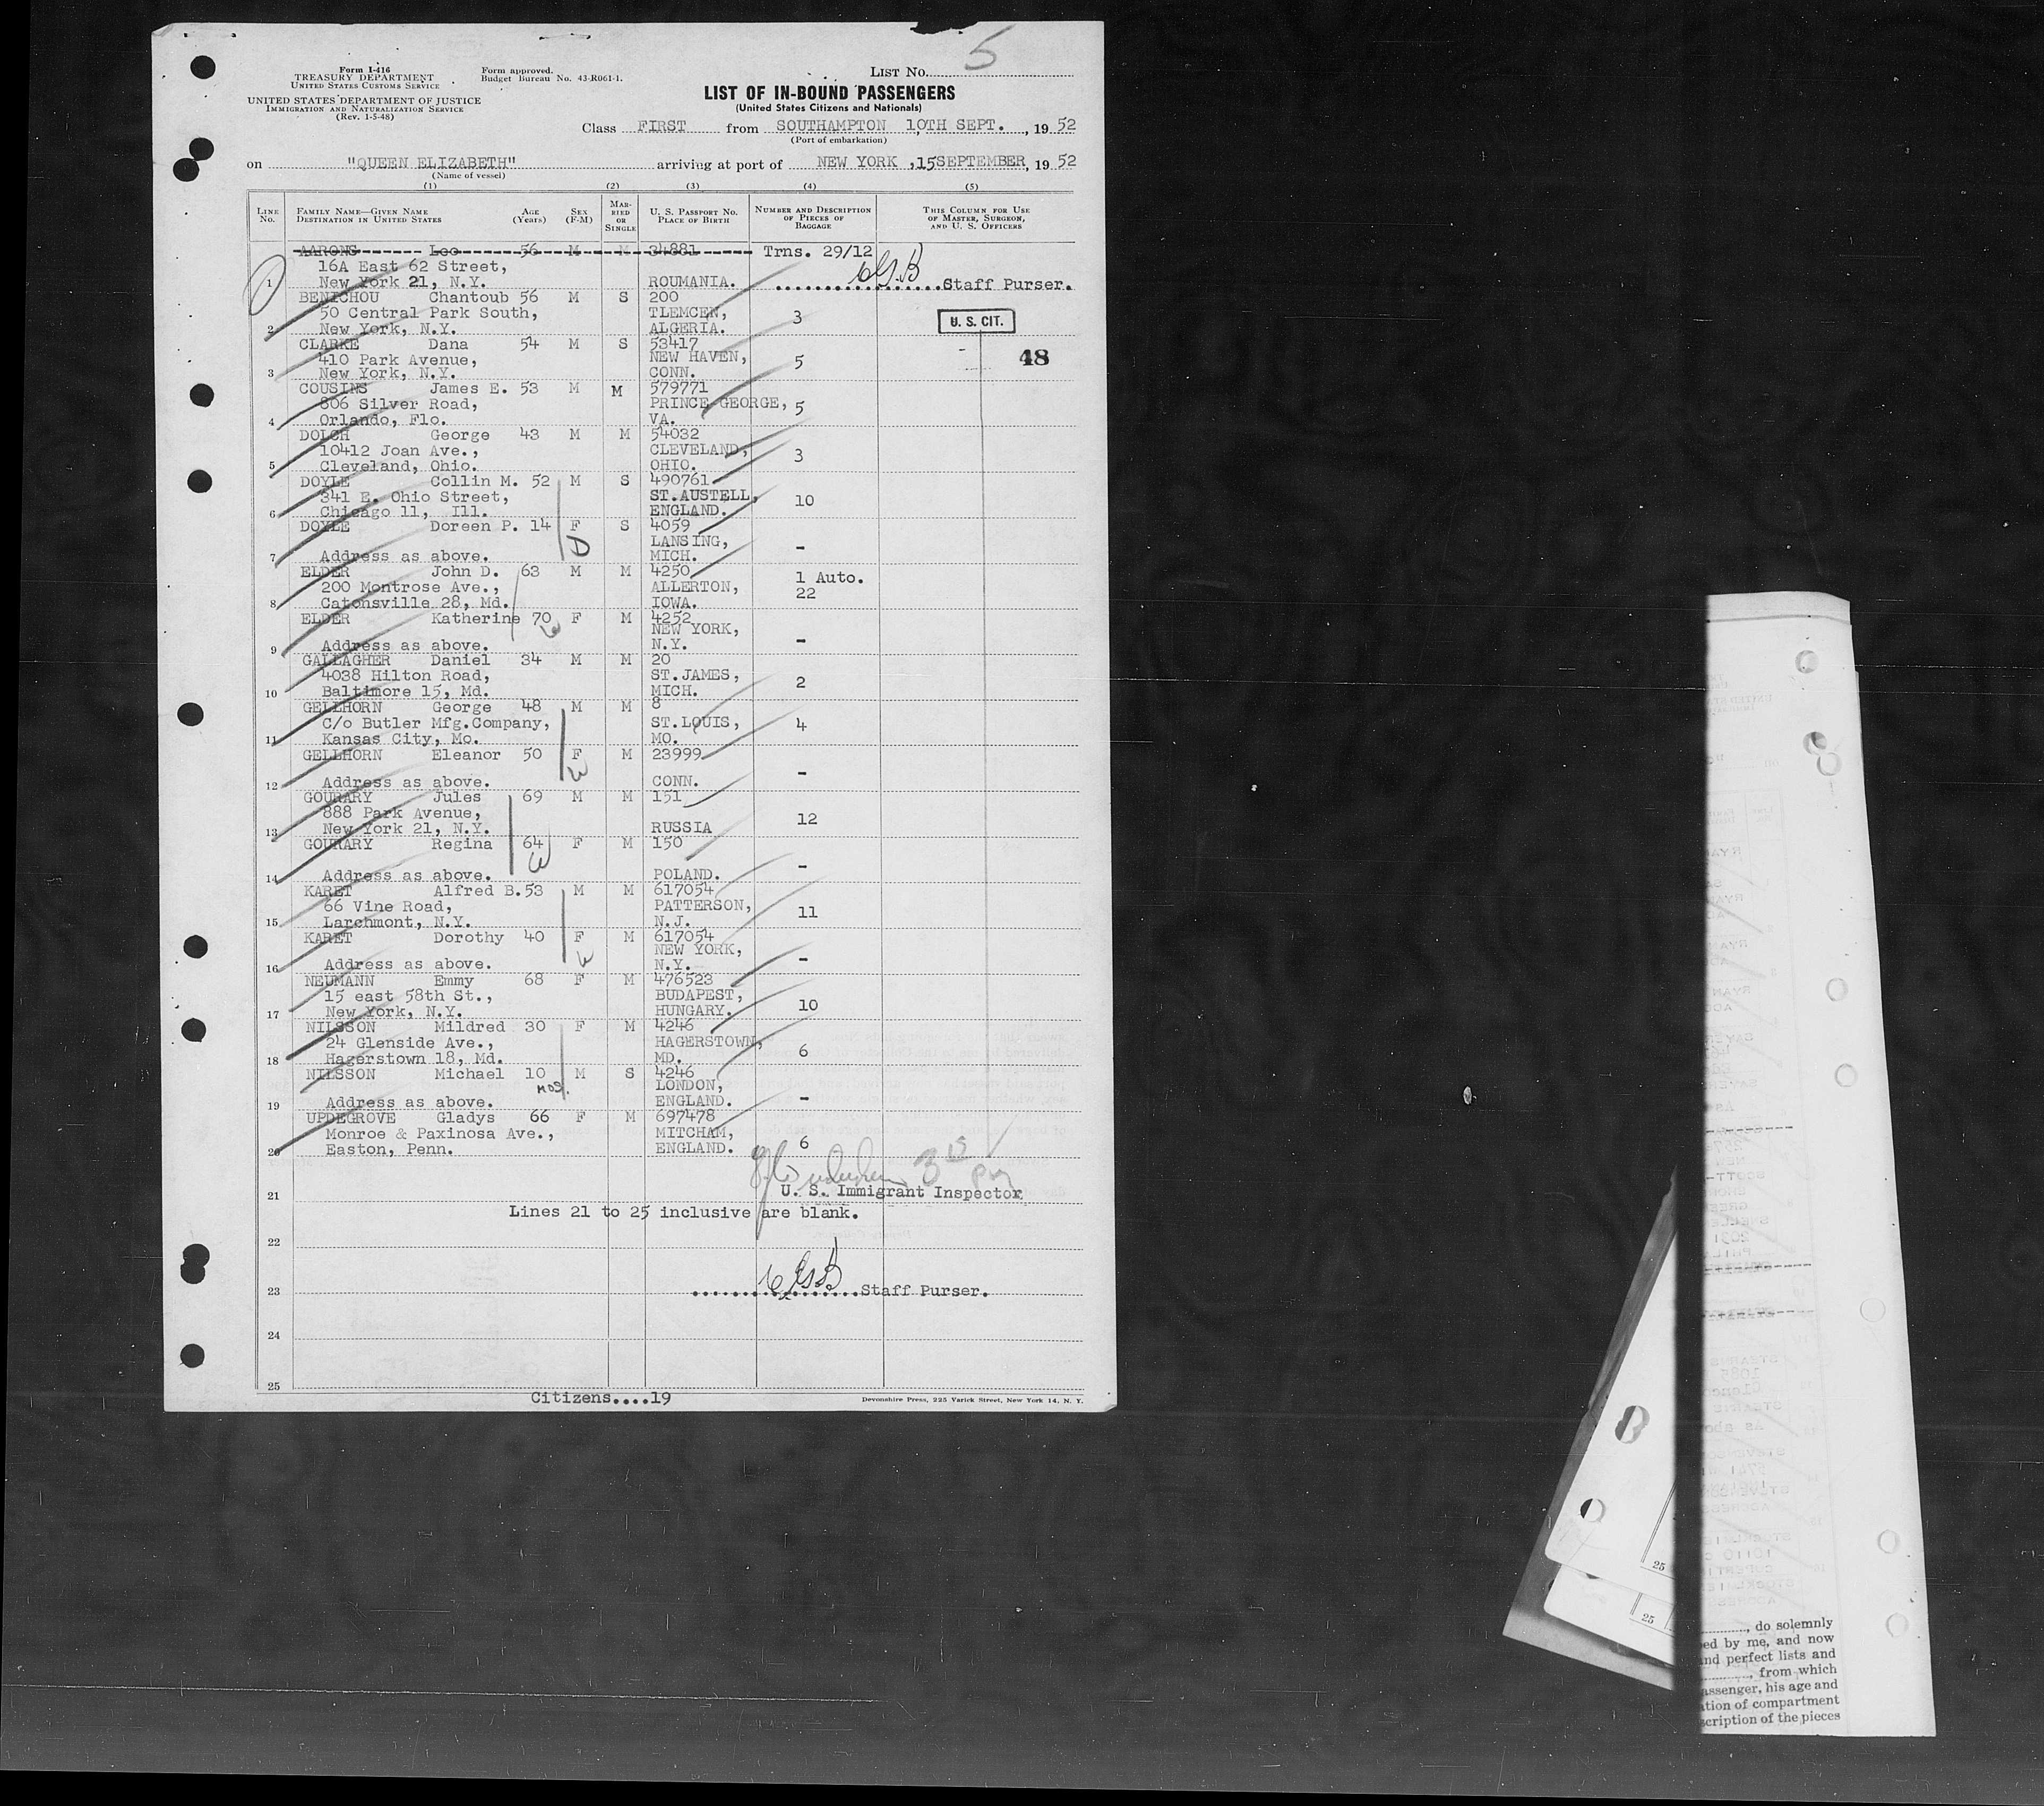 5
Form I-416
TREASURY DEPARTMENT
UNITED STATES CUSTOMS SERVICE
UNITED STATES DEPARTMENT OF JUSTICE
IMMIGRATION AND NATURALIZATION SERVICE
(Rev. 1-5-48)
Form approved.
Budget Bureau No. 43-R061-1.
LIST NO.
LIST OF IN-BOUND PASSENGERS
(United States Citizens and Nationals)
Class FIRST from SOUTHAMPTON 10TH SEPT. , 19 52
(Port of embarkation)
on "QUEEN ELIZABETH" arriving at port of NEW YORK ,15SEPTEMBER, 19 52
(Name of vessel)
(1) (2) (3) (4) (5)
LINE NO. FAMILY NAME—GIVEN NAME DESTINATION IN UNITED STATES AGE (YEARS) SEX (F-M) MARRIED OR SINGLE U. S. PASSPORT NO. PLACE OF BIRTH NUMBER AND DESCRIPTION OF PIECES OF BAGGAGE THIS COLUMN FOR USE OF MASTER, SURGEON, AND U. S. OFFICERS
AARONS Leo 56 M M 34881 Trns. 29/12
16A East 62 Street,
1 New York 21, N.Y. ROUMANIA. Staff Purser.
BENICHOU Chantoub 56 M S 200
50 Central Park South, TLEMCEN, 3
2 New York, N.Y. ALGERIA. U. S. CIT.
CLARKE Dana 54 M S 53417
410 Park Avenue, NEW HAVEN, 5 48
3 New York, N.Y. CONN.
COUSINS James E. 53 M M 579771
806 Silver Road, PRINCE GEORGE, 5
4 Orlando, Flo. VA.
DOLCH George 43 M M 54032
10412 Joan Ave., CLEVELAND, 3
5 Cleveland, Ohio. OHIO.
DOYLE Collin M. 52 M S 490761
341 E. Ohio Street, ST.AUSTELL, 10
6 Chicago 11, Ill. ENGLAND.
DOYLE Doreen P. 14 F S 4059
LANSING, -
7 Address as above. MICH.
ELDER John D. 63 M M 4250
200 Montrose Ave., ALLERTON, 1 Auto. 22
8 Catonsville 28, Md. IOWA.
ELDER Katherine 70 F M 4252
NEW YORK, -
9 Address as above. N.Y.
GALLAGHER Daniel 34 M M 20
4038 Hilton Road, ST.JAMES, 2
10 Baltimore 15, Md. MICH.
GELLHORN George 48 M M 8
C/o Butler Mfg.Company, ST.LOUIS, 4
11 Kansas City, Mo. MO.
GELLHORN Eleanor 50 F M 23999
-
12 Address as above. CONN.
GOURARY Jules 69 M M 151
888 Park Avenue, 12
13 New York 21, N.Y. RUSSIA
GOURARY Regina 64 F M 150
-
14 Address as above. POLAND.
KARET Alfred B. 53 M M 617054
66 Vine Road, PATTERSON, 11
15 Larchmont, N.Y. N.J.
KARET Dorothy 40 F M 617054
NEW YORK, -
16 Address as above. N.Y.
NEUMANN Emmy 68 F M 476523
15 east 58th St., BUDAPEST, 10
17 New York, N.Y. HUNGARY.
NILSSON Mildred 30 F M 4246
24 Glenside Ave., HAGERSTOWN, 6
18 Hagerstown 18, Md. MD.
NILSSON Michael 10 mos. M S 4246
LONDON, -
19 Address as above. ENGLAND.
UPDEGROVE Gladys 66 F M 697478
Monroe & Paxinosa Ave., MITCHAM, 6
20 Easton, Penn. ENGLAND.
21 U. S. Immigrant Inspector
Lines 21 to 25 inclusive are blank.
22
23 Staff Purser.
24
25
Citizens....19
Devonshire Press, 225 Varick Street, New York 14, N. Y.
25
25
, do solemnly
ed by me, and now
nd perfect lists and
, from which
assenger, his age and
ation of compartment
scription of the pieces